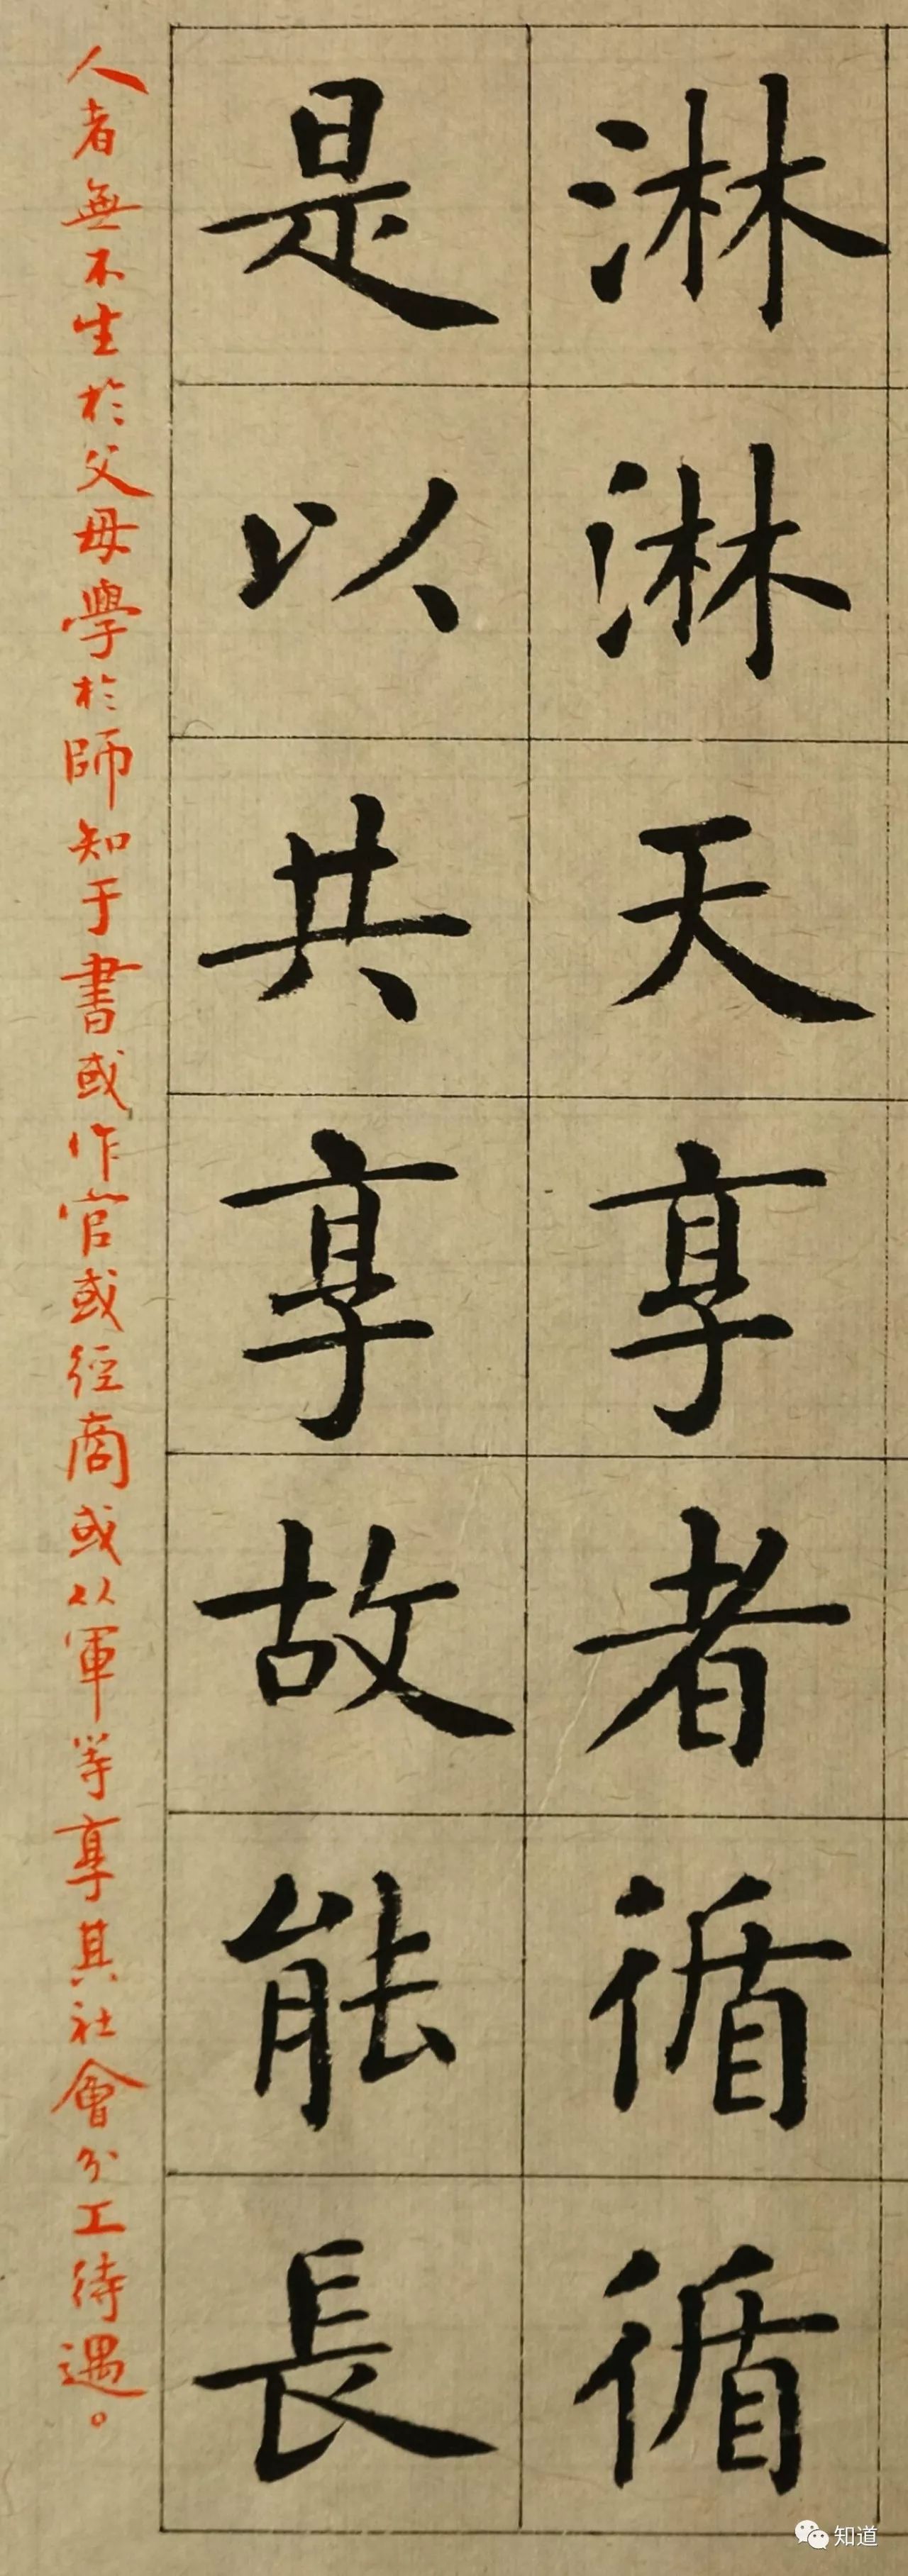 淋淋天享者循循
是以共享故能長
人者無不生於父母學於師知于書或作官或經商或以軍等享其社會分工待遇。
知道